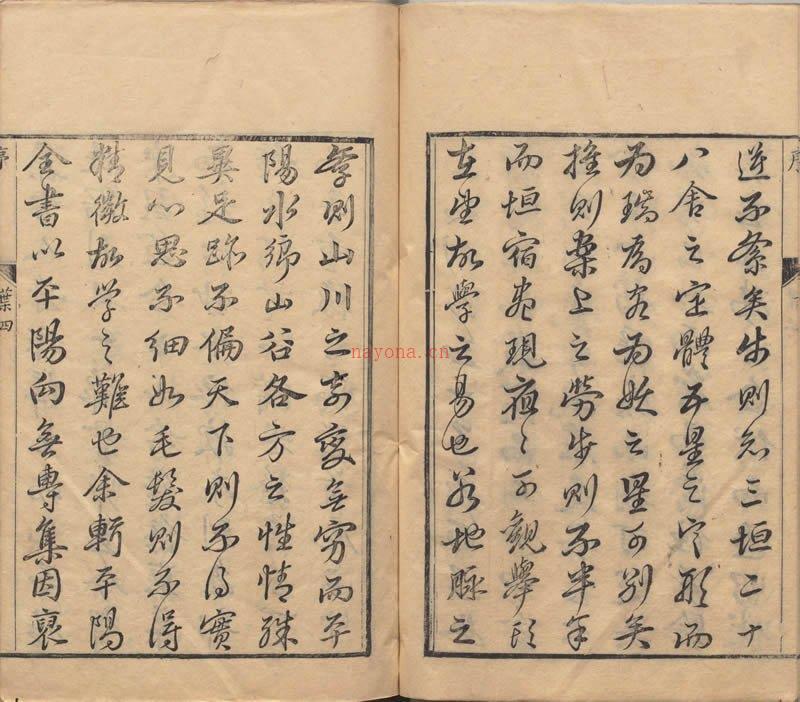 逆不紊矣步則知三垣二十
八舍之定體五星之定形而
為瑞為客為妖之星可別矣
推則案上之勞步則不半年
而垣宿盡現夜々可觀舉目
在望故學之易也若地脉之
學則山川之奇變無窮而平
陽水鄉山谷各方之性情殊
異足跡不偏天下則不得實
見心思不細如毛髮則不得
精微故學之難也余輯平陽
全書以平陽向無專集因裒
序
葉四
序
nayona.cn